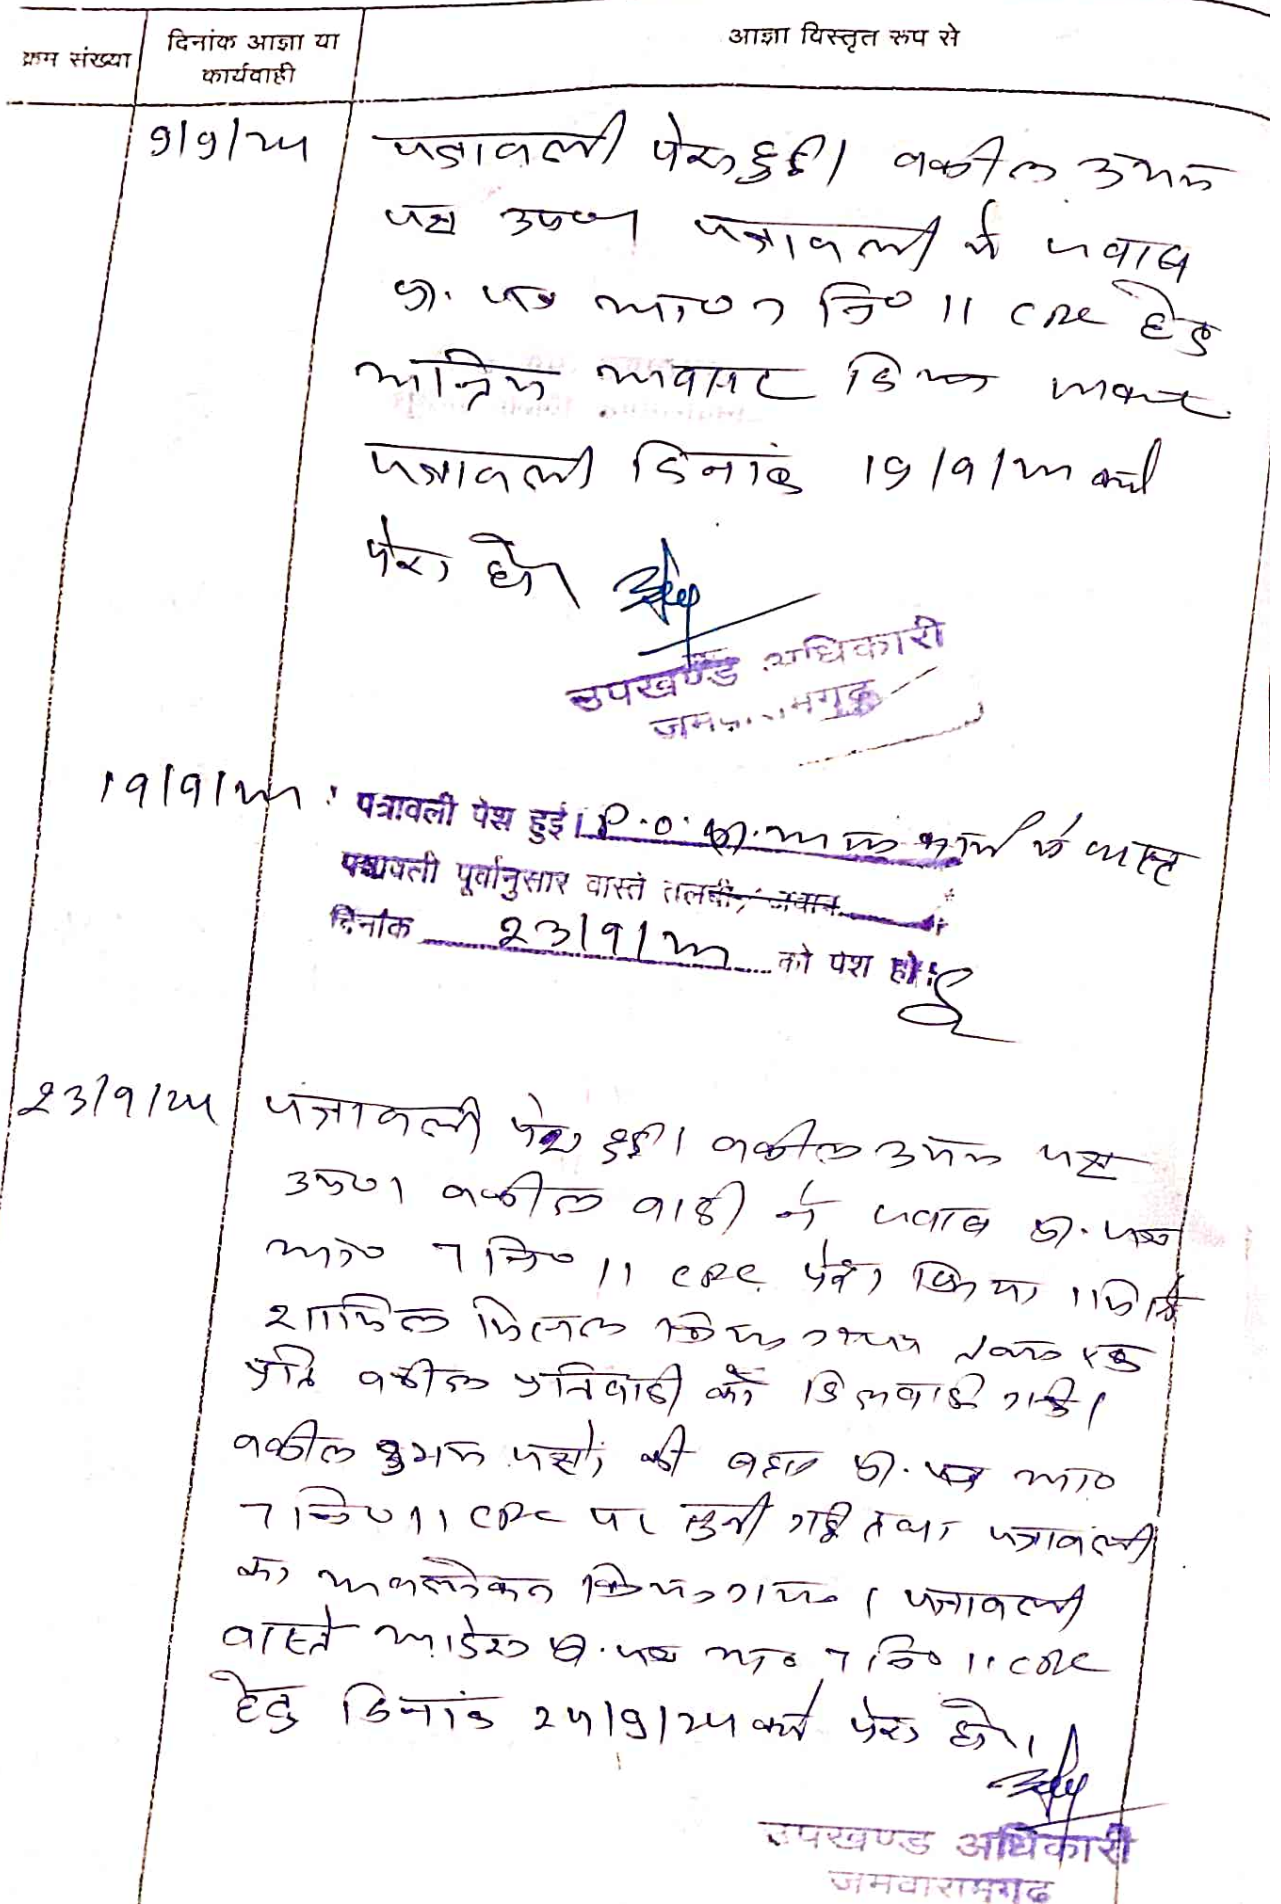 क्रम संख्या
दिनांक आज्ञा या
कार्यवाही
आज्ञा विस्तृत रूप से
9/9/24
पत्रावली पेश हुई। वकील उभय
पक्ष उप०। पत्रावली में जवाब
प्रा. पत्र आ० 7 नि० 11 CPC हेतु
अन्तिम अवसर दिया जाकर
पत्रावली दिनांक 19/9/24 को
पेश हो।
उपखण्ड अधिकारी
19/9/24
पत्रावली पेश हुई। P.O. के वास्ते
पत्रावली पूर्वानुसार वास्ते तलबी, जवाब
दिनांक 23/9/24 को पेश हो।
23/9/24
पत्रावली पेश हुई। वकील उभय पक्ष
उप०। वकील वादी ने जवाब प्रा. पत्र
आ० 7 नि० 11 CPC पेश किया। जिसे
शामिल मिसल किया गया एक
प्रति वकील प्रतिवादी को दिलवाई गई।
वकील उभय पक्षों की बहस प्रा. पत्र आ०
7 नि० 11 CPC पर सुनी गई तथा पत्रावली
का अवलोकन किया गया। पत्रावली
वास्ते आदेश प्रा. पत्र आ० 7 नि० 11 CPC
हेतु दिनांक 24/9/24 को पेश हो।
उपखण्ड अधिकारी
जमवारामगढ़